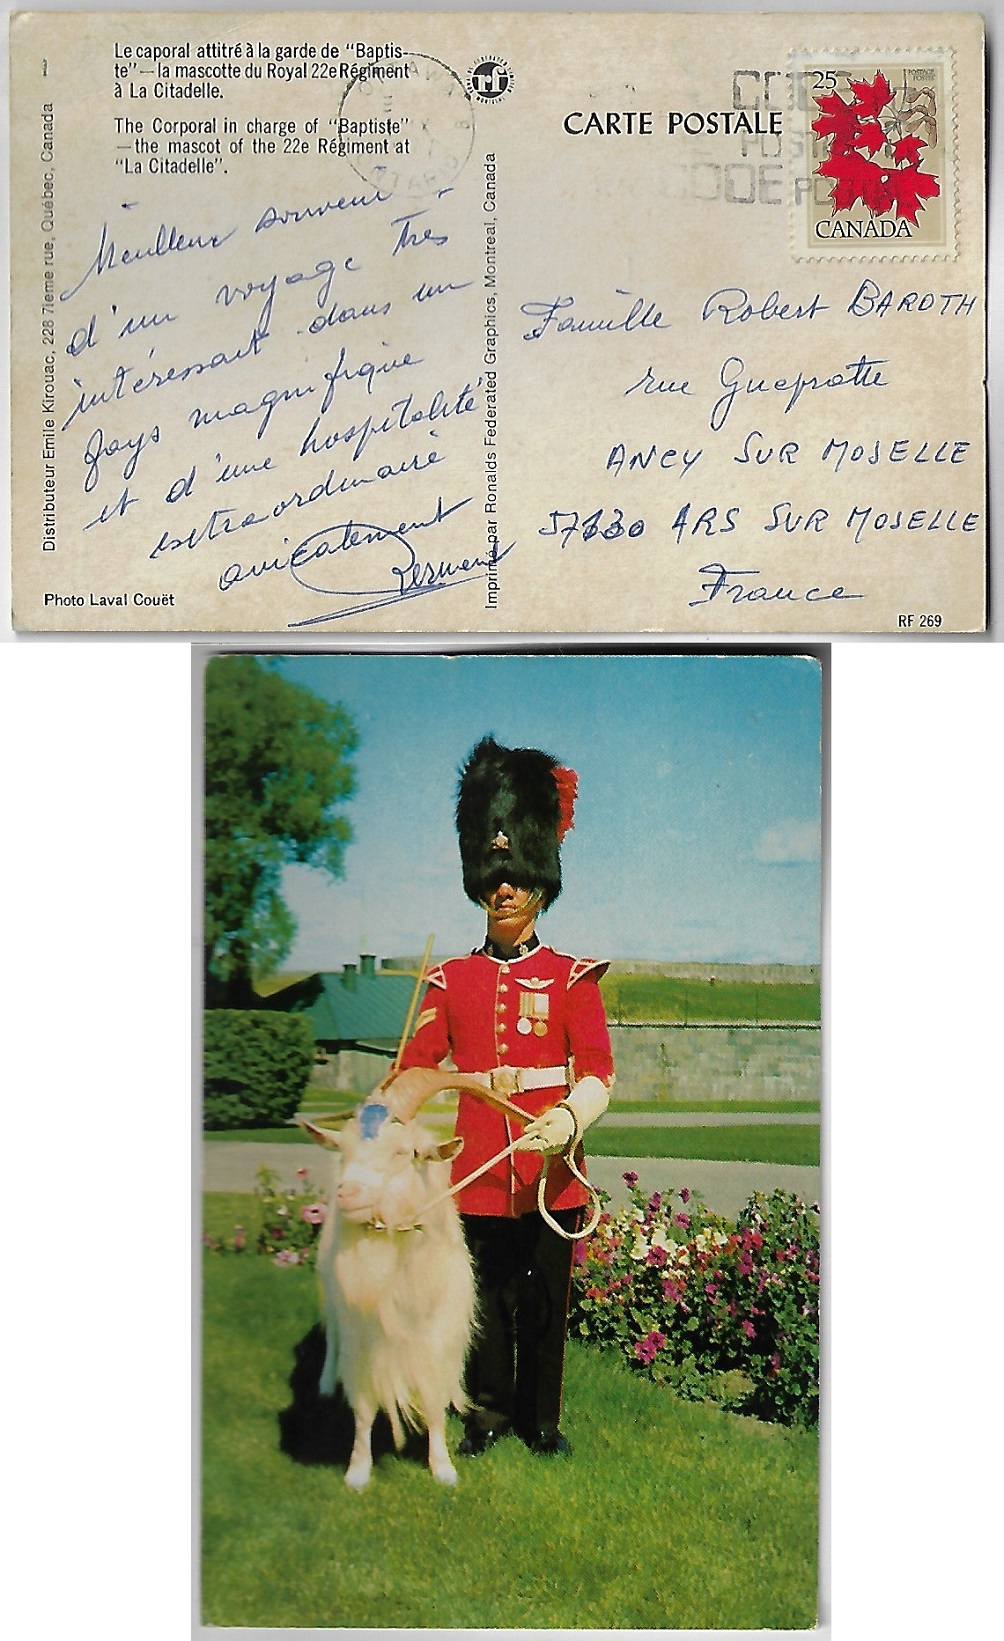 Le caporal attitré à la garde de "Baptis-
te"—la mascotte du Royal 22e Régiment
à La Citadelle.
The Corporal in charge of "Baptiste"
—the mascot of the 22e Régiment at
"La Citadelle".
Distributeur Emile Kirouac, 228 7ieme rue, Québec, Canada
Meilleur souvenir
d'un voyage très
intéressant dans un
pays magnifique
et d'une hospitalité
extraordinaire
amicalement
Photo Laval Couët
Imprimé par Ronalds Federated Graphics, Montreal, Canada
rf
CARTE POSTALE
CODE
POSTAL
CODE POSTAL
25
POSTAGE
POSTES
CANADA
Famille Robert BAROTH
rue Gueprotte
ANCY SUR MOSELLE
57130 ARS SUR MOSELLE
France
RF 269